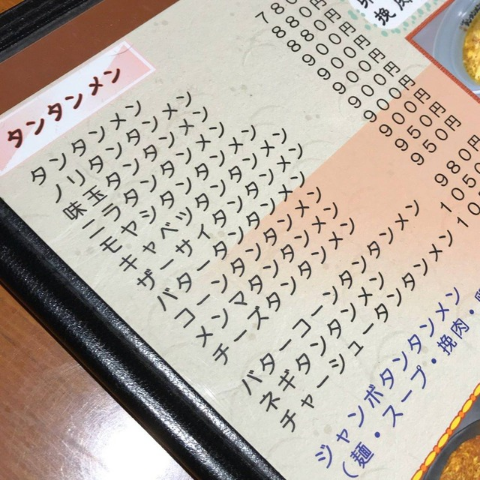 タンタンメン
タンタンメン 780
ノリタンタンメン 880円
味玉タンタンメン 880円
ニラタンタンメン 900円
モヤシタンタンメン 900円
キャベツタンタンメン 900円
ザーサイタンタンメン 900円
バタータンタンメン 900円
コーンタンタンメン 900円
メンマタンタンメン 950円
チーズタンタンメン 950円
バターコーンタンタンメン 980円
ネギタンタンメン 1050
チャーシュータンタンメン 10
ジャンボタンタンメン
(麺・スープ・挽肉・
挽肉